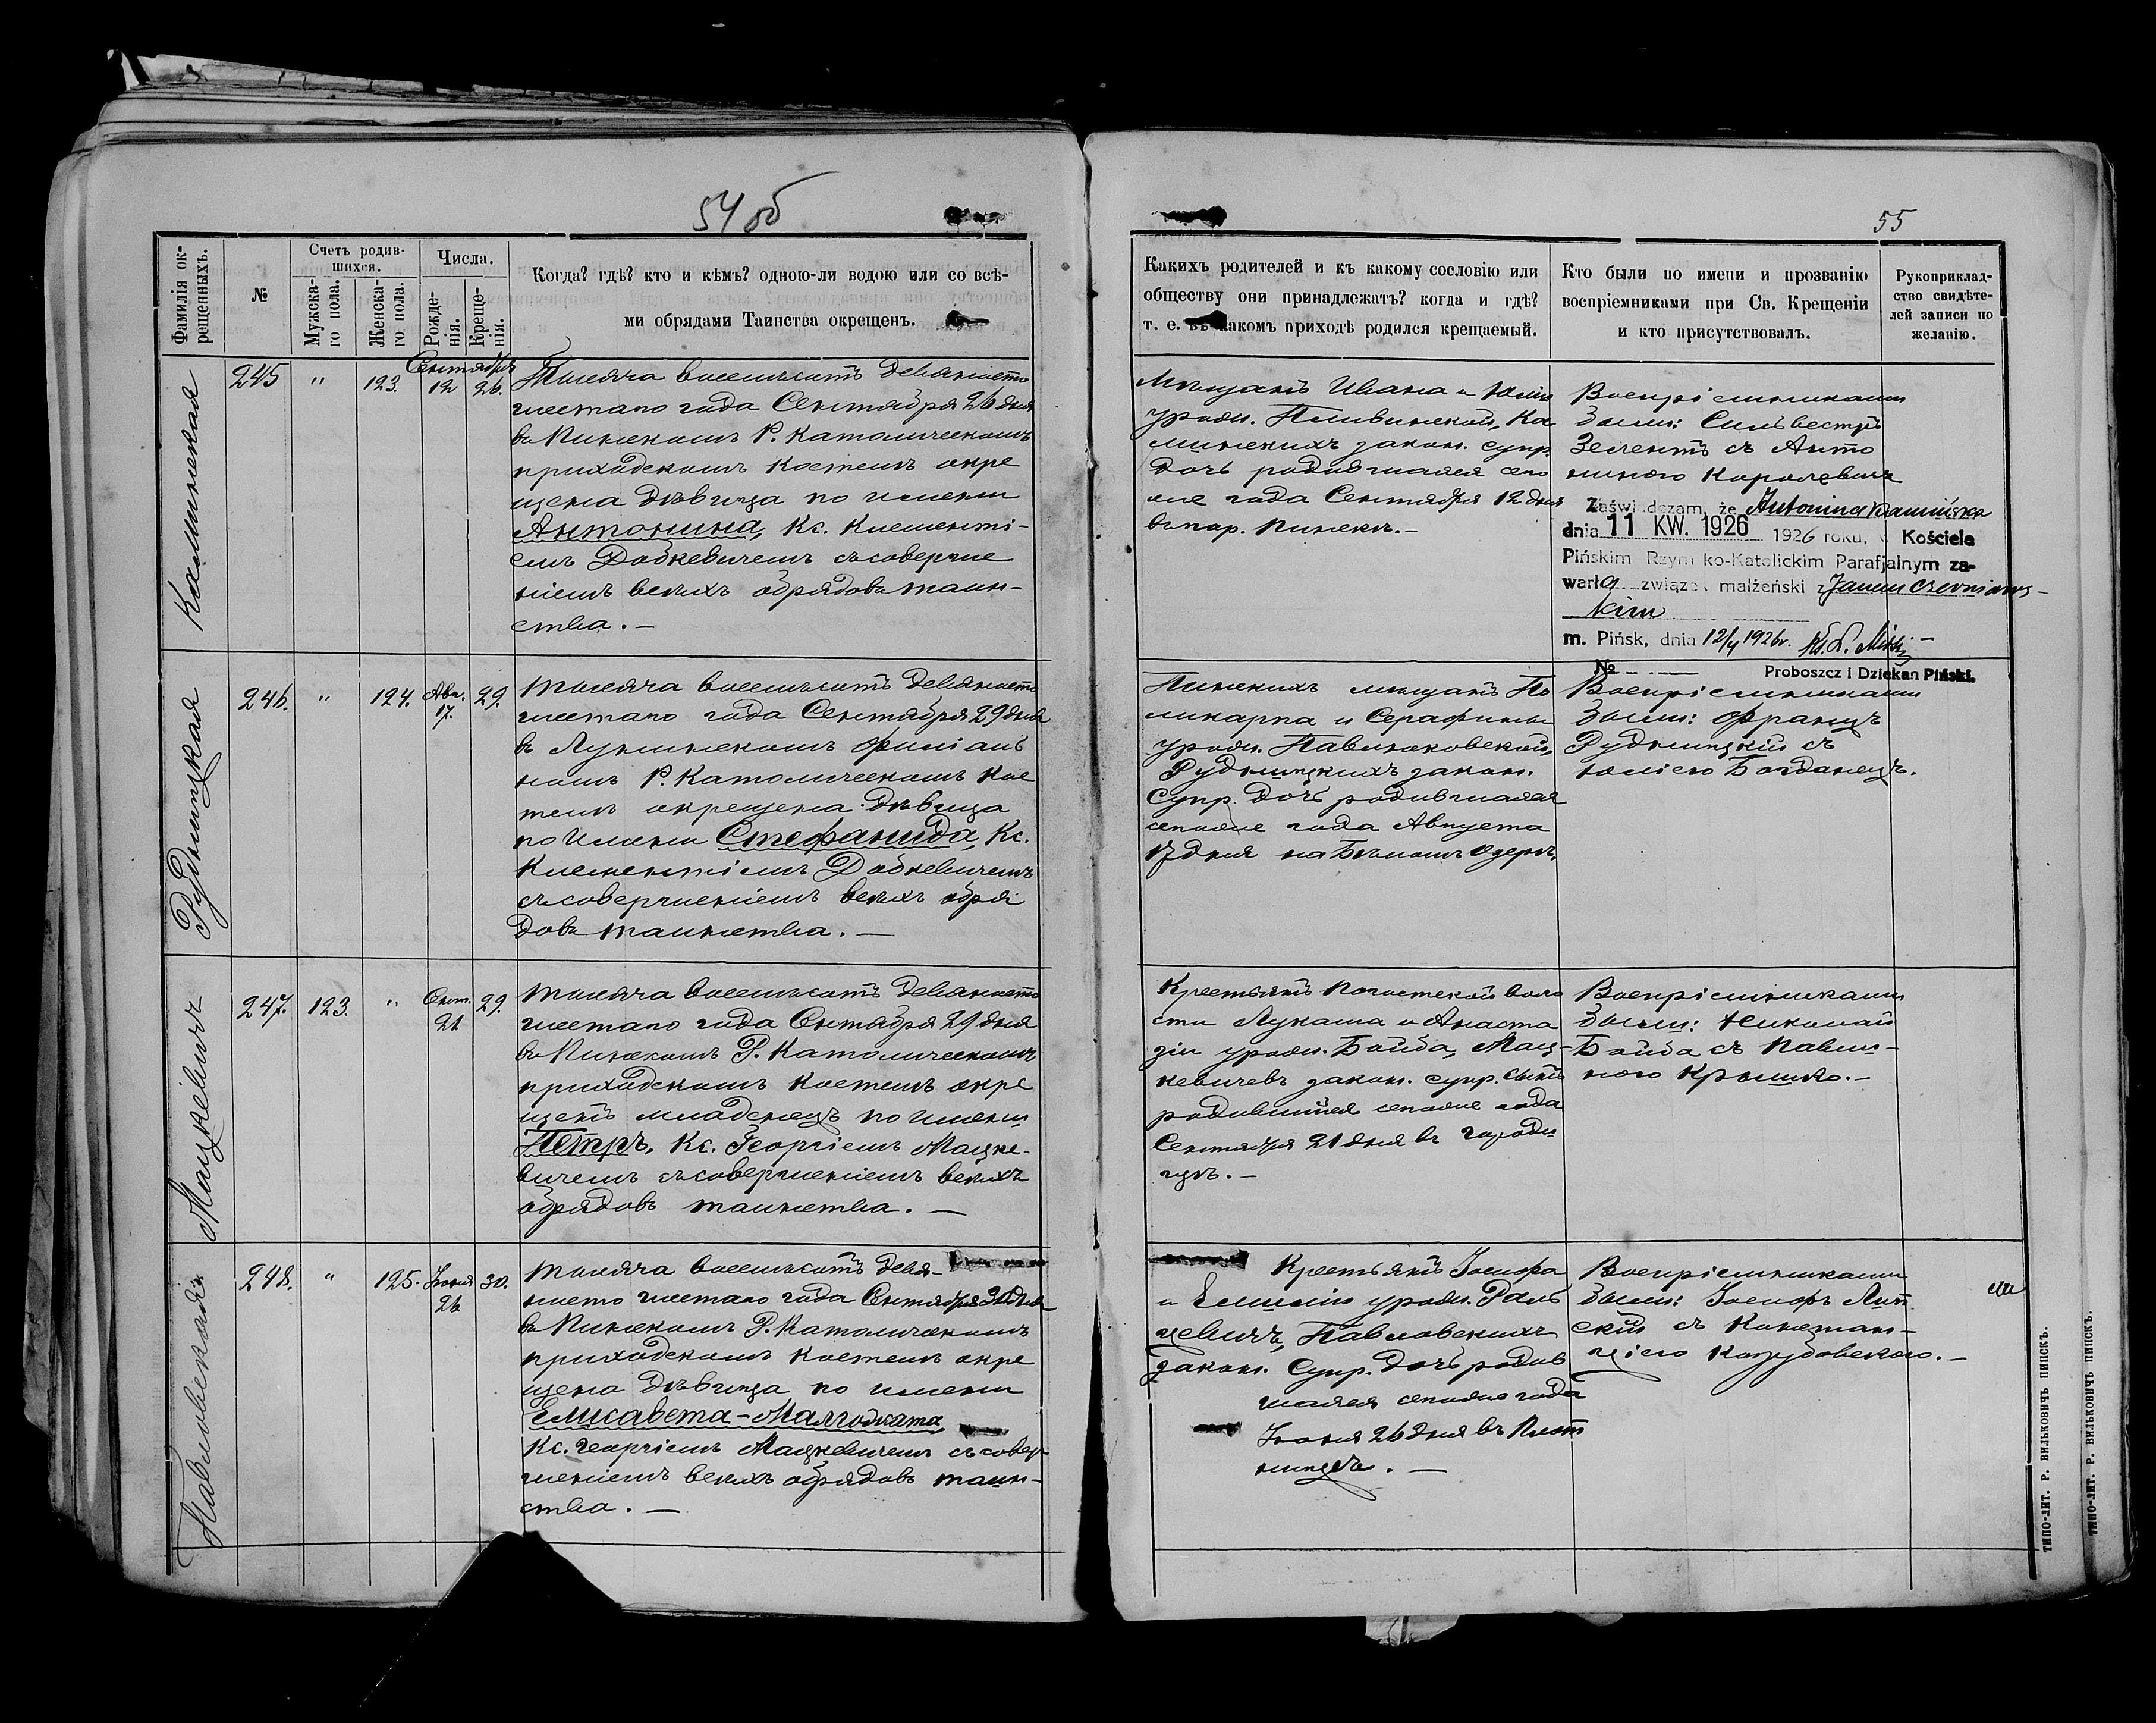 54 об
55
Фамилія ок-
рещенныхъ.
№
Счетъ родив-
шихся.
Мужска-
го пола.
Женска-
го пола.
Числа.
Рожде-
нія.
Креще-
нія.
Когда? гдѣ? кто и кѣмъ? одною-ли водою или со всѣ-
ми обрядами Таинства окрещенъ.
Какихъ родителей и къ какому сословію или
обществу они принадлежатъ? когда и гдѣ?
т. е. въ какомъ приходѣ родился крещаемый.
Кто были по имени и прозванію
воспріемниками при Св. Крещеніи
и кто присутствовалъ.
Рукоприклад-
ство свидѣте-
лей записи по
желанію.
Каминская
245 " 123. Сентября 12 26.
Тысяча восемьсотъ девяносто
шестаго года Сентября 26 дня
въ Пинскомъ Р. Католическомъ
приходскомъ костелѣ окре
щена дѣвица по имени
Антонина, Кс. Клементі-
емъ Добкевичемъ съ соверше
ніемъ всѣхъ обрядовъ таин-
ства. —
Мѣщанъ Ивана и Юліи
урожд. Ка
минскихъ закон. супр.
дочь родившаяся сего
же года Сентября 12 дня
въ пар. Пинск. —
Воспріемниками
были: Сильвестръ
Зелентъ съ Анто
ниною Королевичъ
Zaświadczam, że Antonina Kamińska
dnia 11 KW. 1926 1926 roku, w Kościele
Pińskim Rzymsko-Katolickim Parafjalnym za-
warła związek małżeński z Janem Czerniaws-
kim
m. Pińsk, dnia 12/4 1926 r. Ks.
№ Proboszcz i Dziekan Piński.
Рудницкая
246. " 124. Авг. 17. 29.
Тысяча восемьсотъ девяносто
шестаго года Сентября 29 дня
въ Лунинскомъ филіаль
номъ Р. Католическомъ кос
телѣ окрещена дѣвица
по имени Стефанида, Кс.
Клементіемъ Добкевичемъ
съ совершеніемъ всѣхъ обря
довъ таинства. —
Пинскихъ мѣщанъ По
ликарпа и Серафимы
урожд. Павлюковской,
Рудницкихъ закон.
супр. дочь родившаяся
сего же года Августа
17 дня на Бѣломъ Озерѣ.
Воспріемниками
были: Францъ
Рудницкій съ
Юліею Богданецъ.
Мацкевичъ
247. 123. " Сент. 21 29.
Тысяча восемьсотъ девяносто
шестаго года Сентября 29 дня
въ Пинскомъ Р. Католическомъ
приходскомъ костелѣ окре
щенъ младенецъ по имени
Петръ, Кс. Георгіемъ Мацке-
вичемъ съ совершеніемъ всѣхъ
обрядовъ таинства. —
Крестьянъ Погостской воло
сти Лукаша и Анаста
зіи урожд. Бойба, Мац-
кевичевъ закон. супр. сынъ
родившійся сего же года
Сентября 21 дня въ Городи
щѣ. —
Воспріемниками
были: Николай
Бойба съ Павли-
ною Крышко. —
Павловская
248. " 125. Іюня 26 30.
Тысяча восемьсотъ девя-
носто шестаго года Сентября 30 дня
въ Пинскомъ Р. Католическомъ
приходскомъ костелѣ окре
щена дѣвица по имени
Елисавета-Малгожата
Кс. Георгіемъ Мацкевичемъ съ совер-
шеніемъ всѣхъ обрядовъ таин-
ства. —
Крестьянъ Іосифа
и Емиліи урожд. Раль
цевичъ, Павловскихъ
закон. супр. дочь родив
шаяся сего же года
Іюня 26 дня въ Плот
ницѣ. —
Воспріемниками
были: Іосифъ
скій съ Констан-
ціею —
ТИПО-ЛИТ. Р. ВИЛЬКОВИЧЪ ПИНСКЪ.
ТИПО-ЛИТ. Р. ВИЛЬКОВИЧЪ ПИНСКЪ.